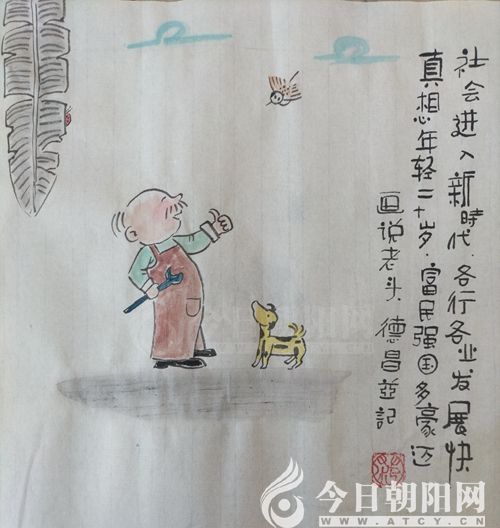 社会进入新時代.各行各业发展快
真想年轻二十岁.富民强国多豪迈
画说老头 德昌並記
今日朝阳网
WWW.ATCY.CN